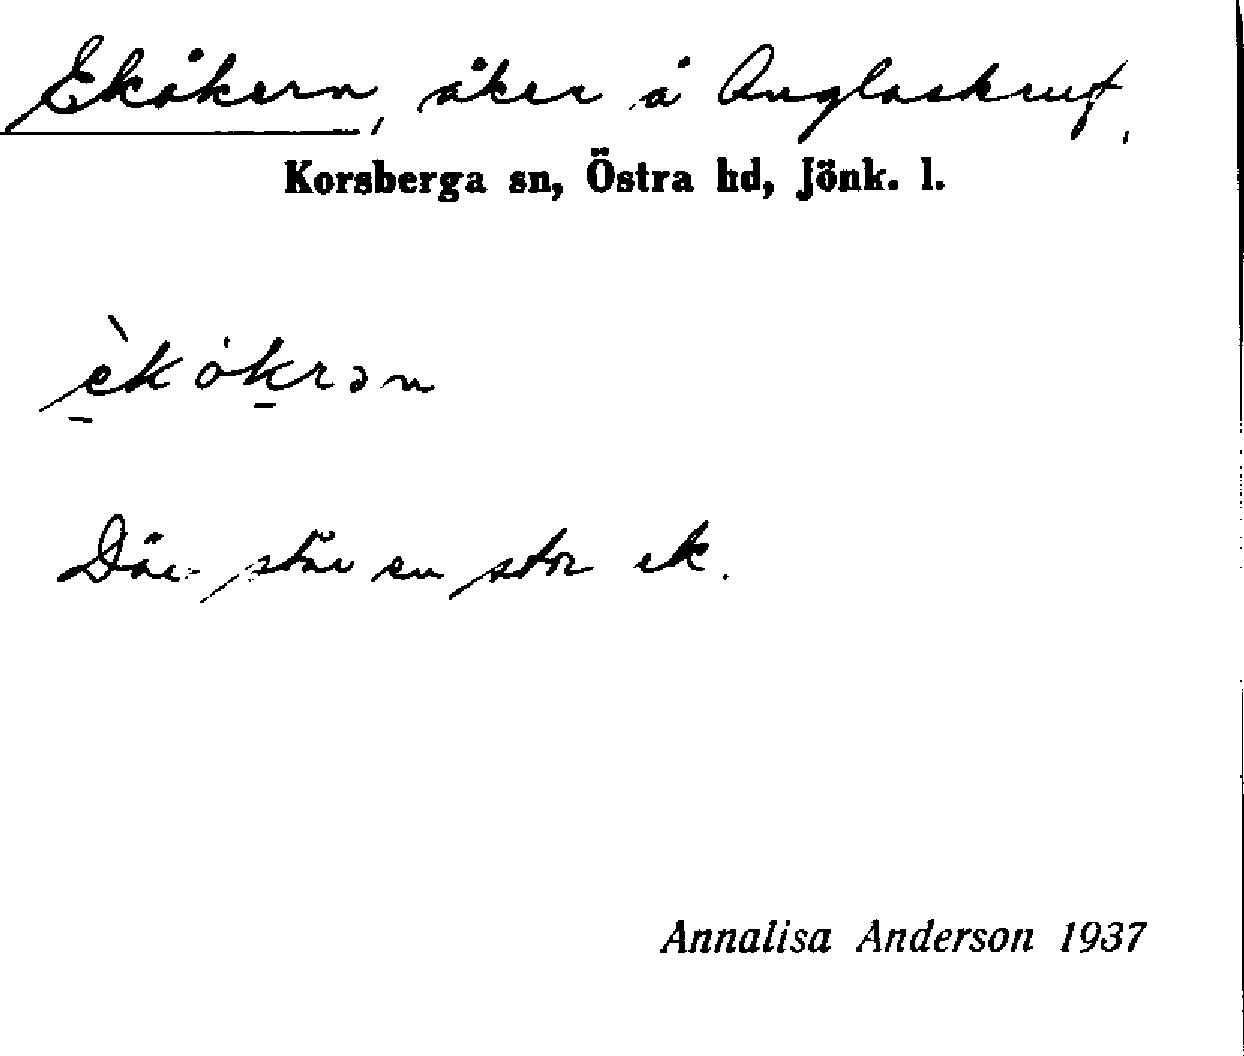 Ekåkern, åker å Anglaskruf,
Korsberga sn, Östra hd, Jönk. l.
è̱kók̠rən
Där står en stor ek.
Annalisa Anderson 1937